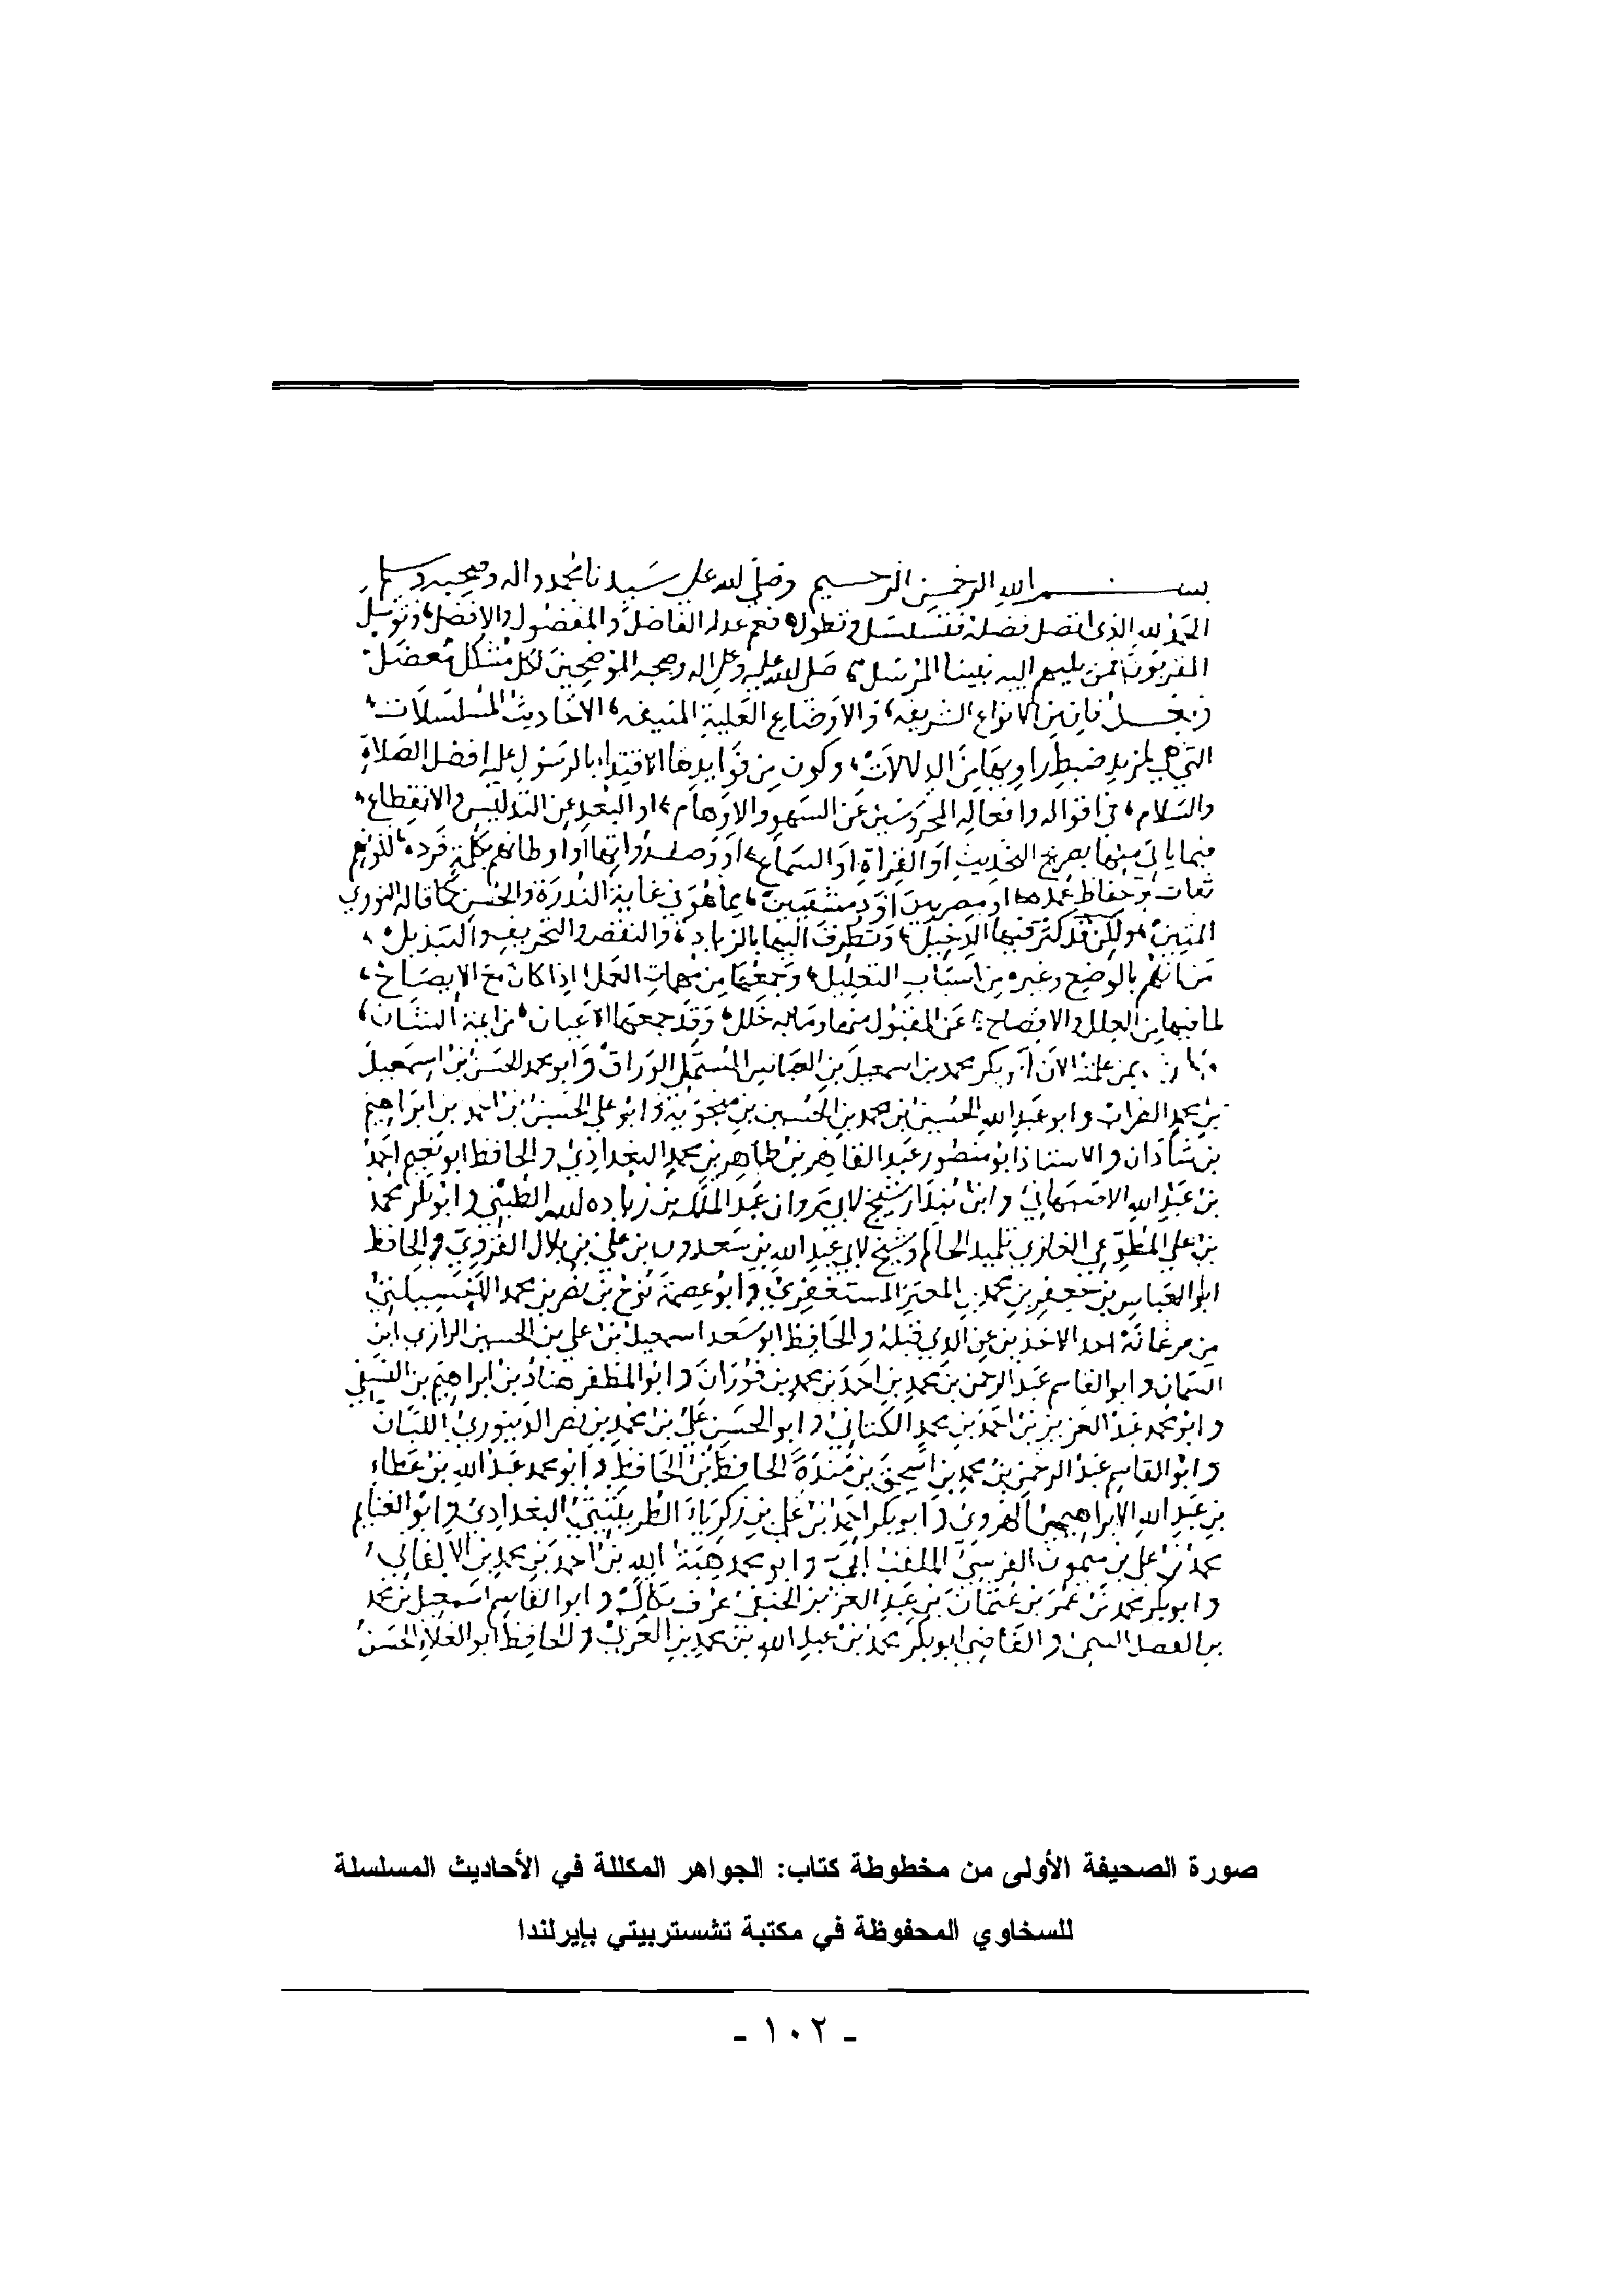 بسم الله الرحمن الرحيم وصلى الله على سيدنا محمد واله وصحبه وسلم
الحمد لله الذي اتصل فضله فتسلسل وتطوله فعم عدله الفاضل والمفضول والافضل وتوسل
المقربون ممن يليهم اليه بنبينا المرسل صلى الله عليه وعلى اله وصحبه الموضحين لكل مشكل ومعضل
وبعد فان من الانواع الشريفه والاوضاع العلية المنيفه الاحاديث المسلسلات
التي هي لمزيد ضبط راويها من الدلالات وكون من فوايدها الاقتداء بالرسول عليه افضل الصلاة
والسلام في اقواله وافعاله المحروسين عن السهو والاوهام او البعد عن التدليس والانقطاع
فيما ياتي منها بصريح التحديث او القراة او السماع او وصف رواتها او اوطانهم بكلمة فردة
ثقات وحفاظ او مصريين او دمشقيين مما هو في غاية الندرة والحسن كما قاله النوري
المتين ولكن قد كثر فيها الدخيل وتطرق اليها بالزيادة والنقص والتحريف والتبديل
من اتهم بالوضع وغيره من اسباب التعليل وجمعها من مهمات العمل اذا كان مع الايضاح
لما فيها من العلل والافصاح عن المقبول منها وما به خلل وقد جمعها الاعيان من ايمة الشان
ممن علمته الان ابو بكر محمد بن اسمعيل بن العباس المستملي الوراق وابو محمد الحسن بن اسمعيل
بن محمد الضراب وابو عبد الله الحسين بن محمد بن الحسين بن منجويه وابو علي الحسن بن احمد بن ابراهيم
بن شاذان والاستاذ ابو منصور عبد القاهر بن طاهر بن محمد البغدادي والحافظ ابو نعيم احمد
بن عبد الله الاصبهاني وابن بندار شيخ لابي مروان عبد الملك بن زيادة الله الطبني وابو بكر محمد
بن علي المطوعي الغازي تلميذ الحاكم وشيخ لابي عبد الله بن سعدون بن علي بن بلال القروي والحافظ
ابو العباس بن جعفر بن محمد بن المعتز المستغفري وابو عصمة نوح بن نصر بن محمد
من فرغانة احد الاخذين عن الذي قبله والحافظ ابو سعد اسمعيل بن علي بن الحسين الرازي ابن
السمان وابو القاسم عبد الرحمن بن محمد بن احمد بن محمد بن فوران وابو المظفر هناد بن ابراهيم بن النسفي
وابو محمد عبد العزيز بن احمد بن محمد الكتاني وابو الحسن علي بن محمد بن نصر الدينوري اللبان
وابو القاسم عبد الرحمن بن محمد بن اسحق بن مندة الحافظ بن الحافظ وابو محمد عبد الله بن عطاء
بن عبد الله الابراهيمي الهروي وابو بكر احمد بن علي بن زكرياء الطريثيثي البغدادي وابو الغنايم
محمد بن علي بن ميمون النرسي الملقب ابي وابو محمد هبة الله بن احمد بن محمد بن الاكفاني
وابو بكر محمد بن عمر بن عثمان بن عبد العزيز الحنفي عرف بكاك وابو القاسم اسمعيل بن محمد
بن الفضل التيمي والقاضي ابو بكر محمد بن عبد الله بن محمد بن العربي والحافظ ابو العلاء الحسن
صورة الصحيفة الأولى من مخطوطة كتاب: الجواهر المكللة في الأحاديث المسلسلة
للسخاوي المحفوظة في مكتبة تشستربيتي بإيرلندا
- ١٠٢ -